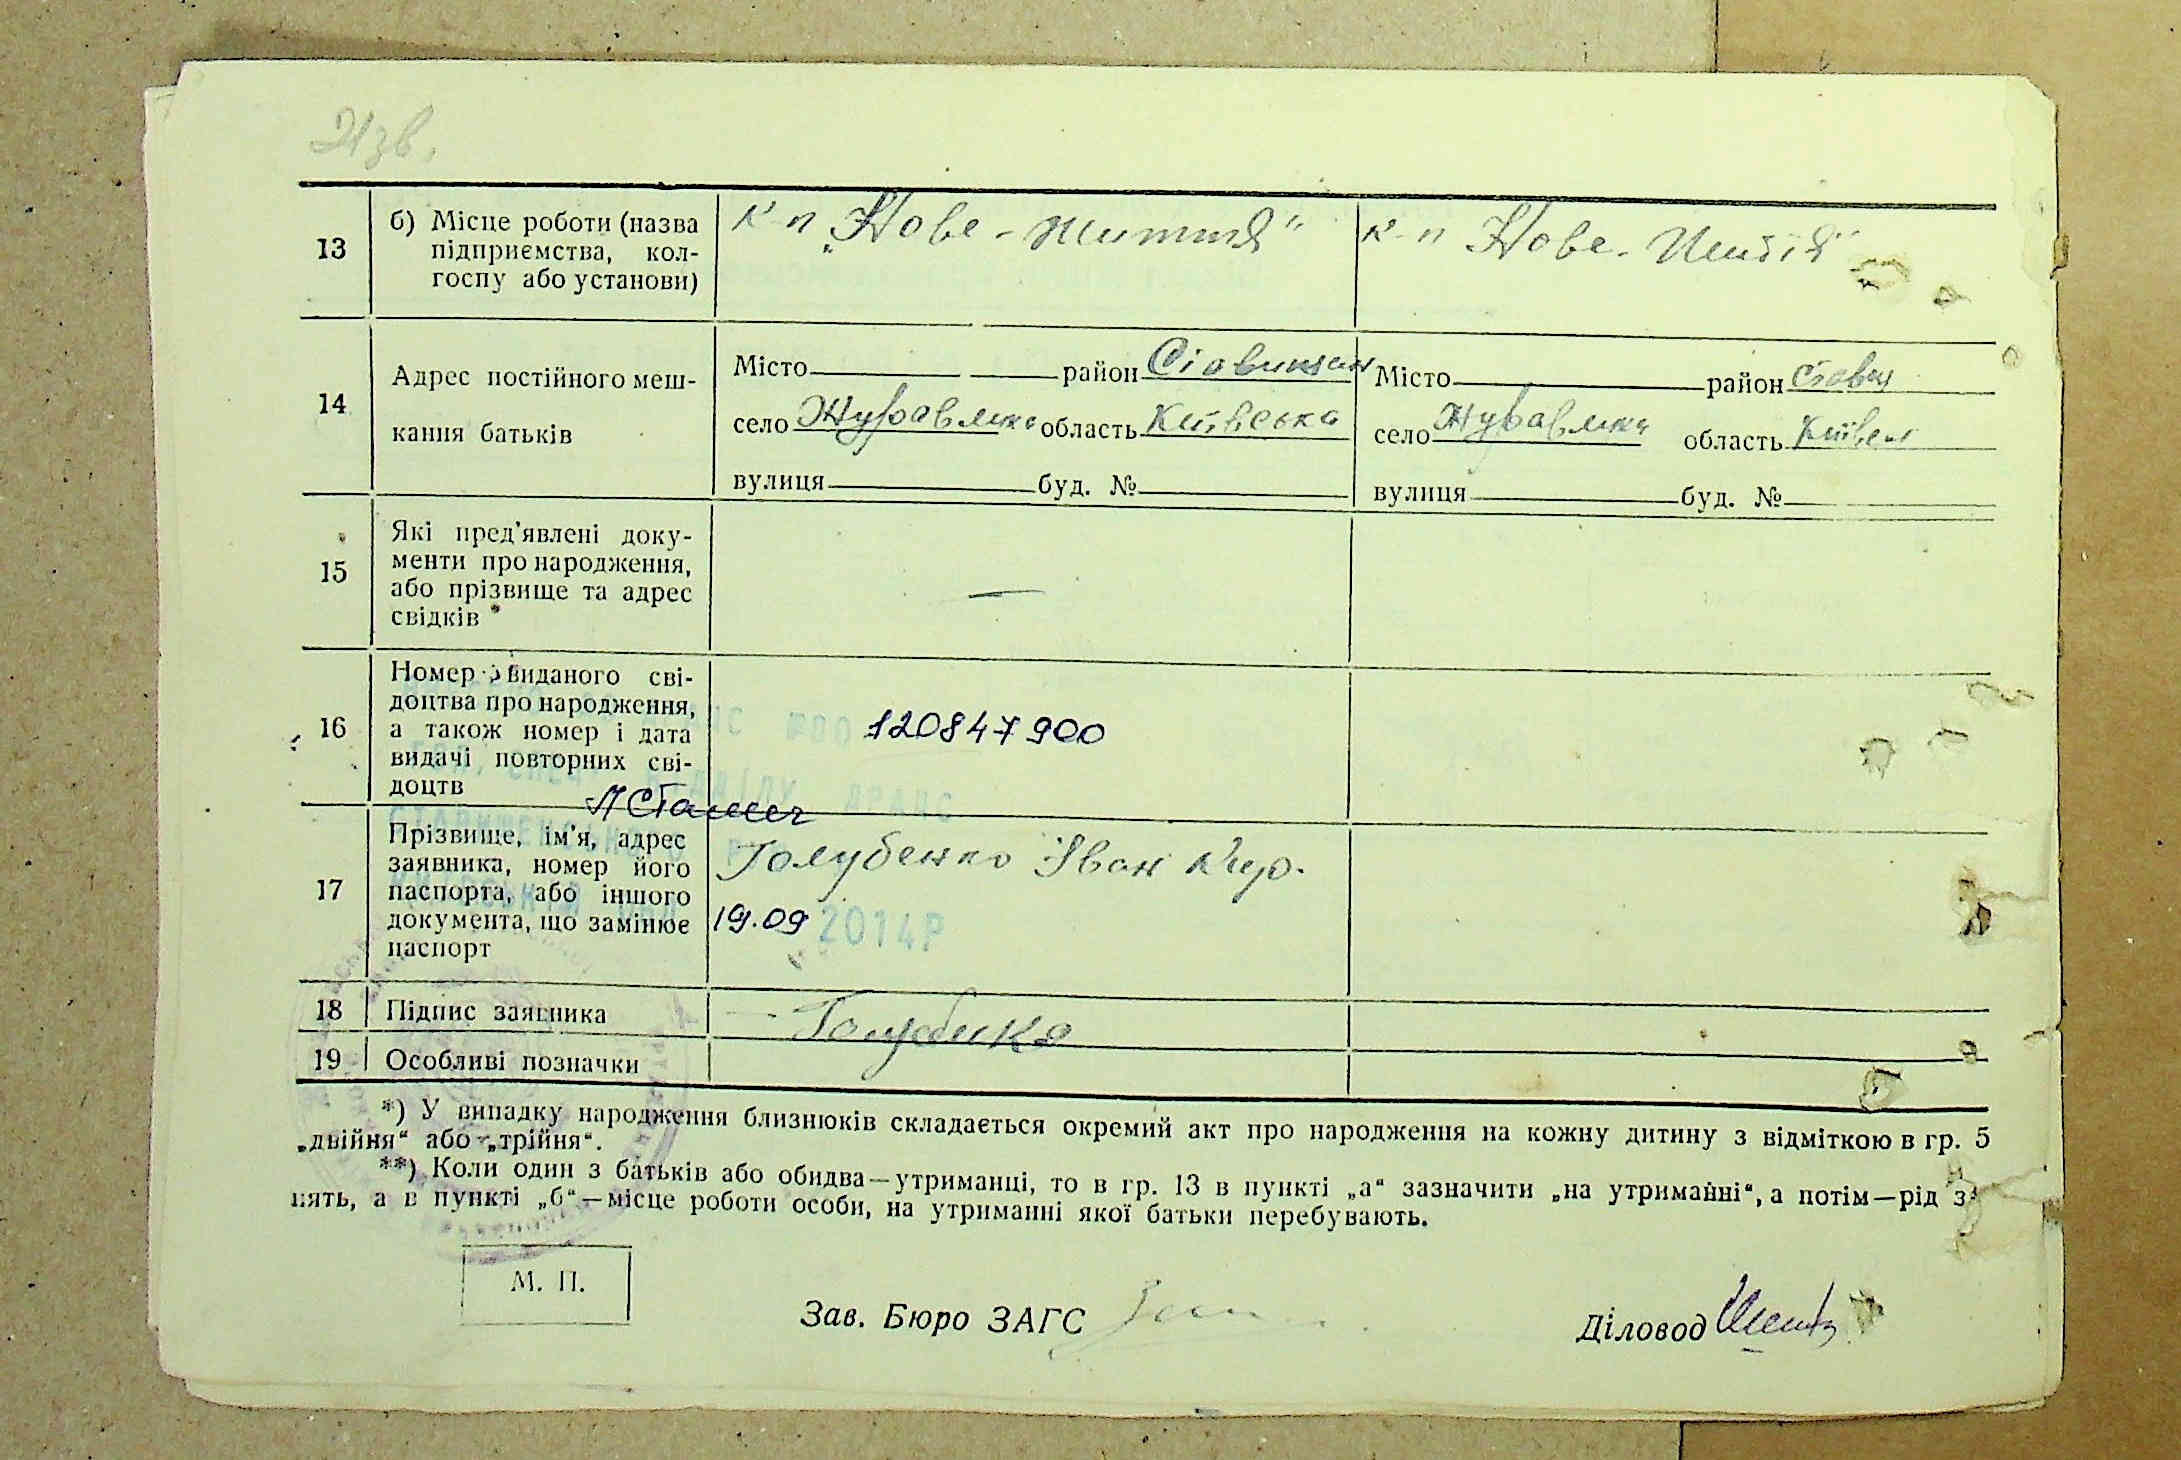 Изв.
13
б) Місце роботи (назва
підприємства, кол-
госпу або установи)
к-п „Нове - життя"
к-п Нове-
14
Адрес постійного меш-
кання батьків
Місто район
село область Київська
вулиця буд. №
Місто район
село область
вулиця буд. №
15
Які пред'явлені доку-
менти про народження,
або прізвище та адрес
свідків *
—
16
Номер виданого сві-
доцтва про народження,
а також номер і дата
видачі повторних сві-
доцтв
120847900
17
Прізвище, ім'я, адрес
заявника, номер його
паспорта, або іншого
документа, що замінює
паспорт
Голубенко Іван
19.09 2014Р
18
Підпис заявника
19
Особливі позначки
*) У випадку народження близнюків складається окремий акт про народження на кожну дитину з відміткою в гр. 5
„двійня“ або „трійня“.
**) Коли один з батьків або обидва—утриманці, то в гр. 13 в пункті „а“ зазначити „на утриманні“, а потім—рід з
нять, а в пункті „б“—місце роботи особи, на утриманні якої батьки перебувають.
М. П.
Зав. Бюро ЗАГС
Діловод